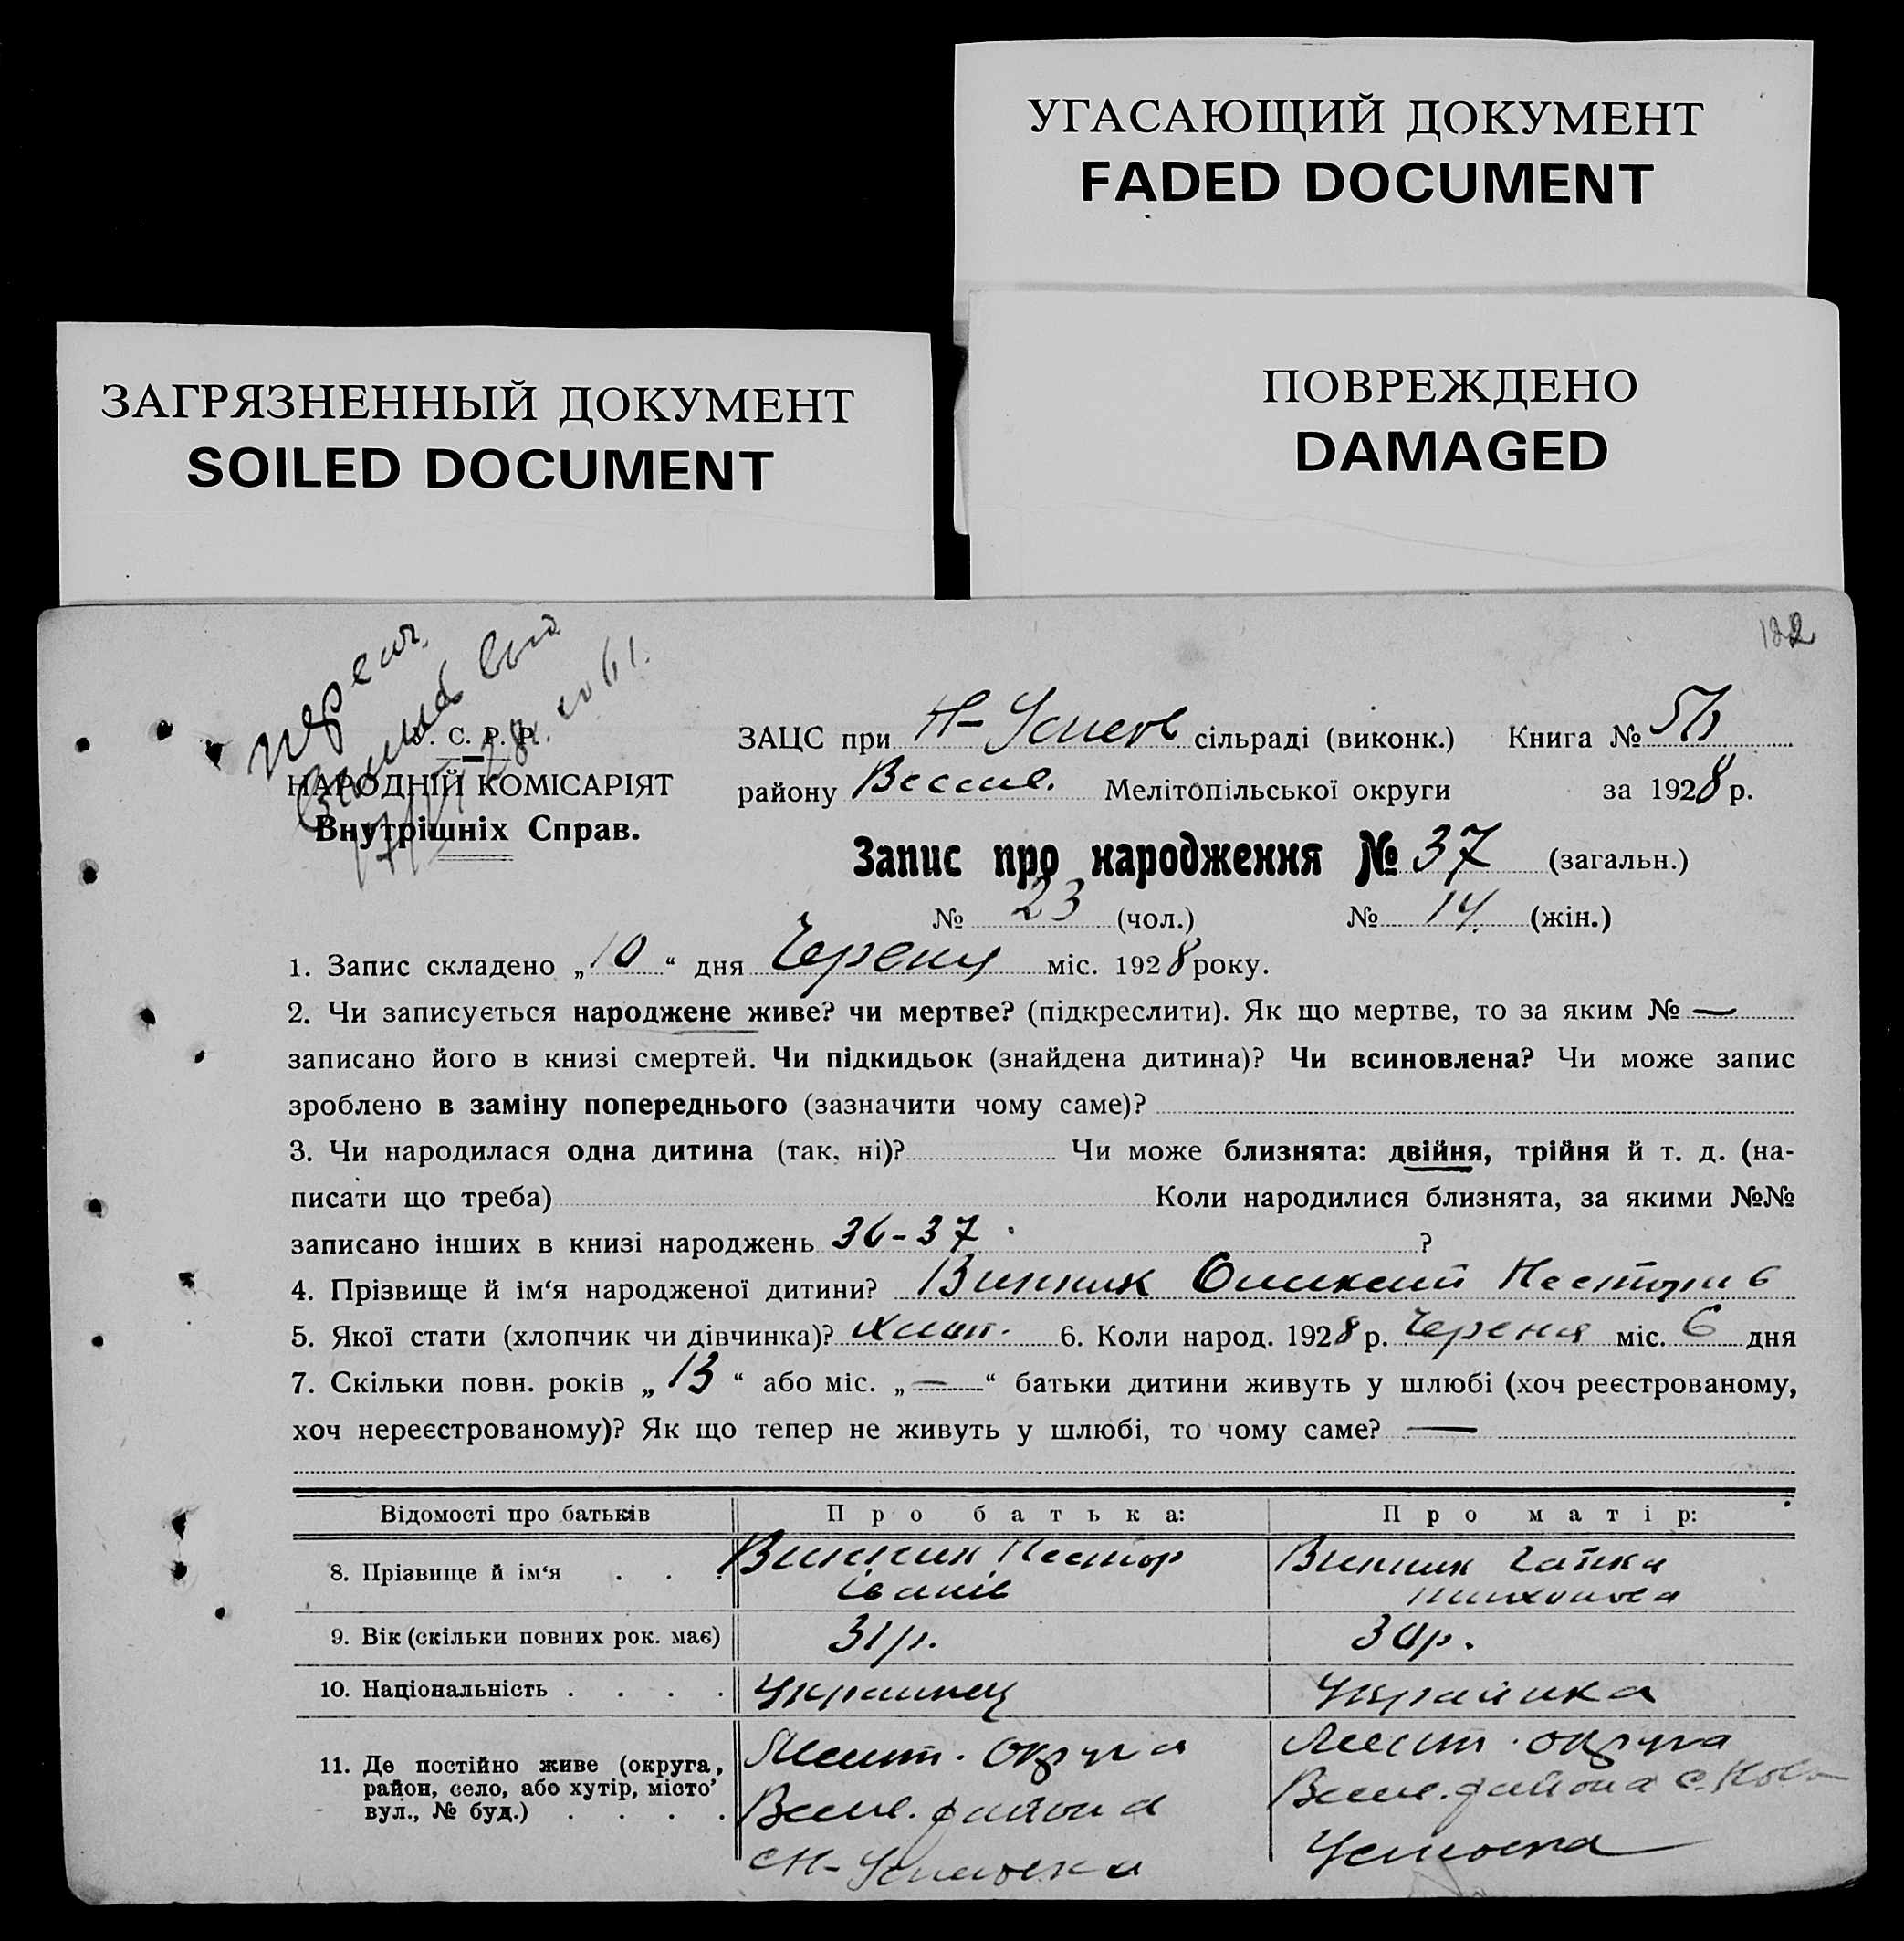 УГАСАЮЩИЙ ДОКУМЕНТ
FADED DOCUMENT
ЗАГРЯЗНЕННЫЙ ДОКУМЕНТ
SOILED DOCUMENT
ПОВРЕЖДЕНО
DAMAGED
122
У. С. Р. Р.
НАРОДНІЙ КОМІСАРІЯТ
Внутрішніх Справ.
ЗАЦС при Н-Успен сільраді (виконк.) Книга №
району Весел. Мелітопільської округи за 1928 р.
Запис про народження № 37 (загальн.)
№ 23 (чол.) № 14 (жін.)
1. Запис складено „10“ дня Червня міс. 1928 року.
2. Чи записується народжене живе? чи мертве? (підкреслити). Як що мертве, то за яким № —
записано його в книзі смертей. Чи підкидьок (знайдена дитина)? Чи всиновлена? Чи може запис
зроблено в заміну попереднього (зазначити чому саме)?
3. Чи народилася одна дитина (так, ні)? Чи може близнята: двійня, трійня й т. д. (на-
писати що треба) Коли народилися близнята, за якими №№
записано інших в книзі народжень 36-37 ?
4. Прізвище й ім‘я народженої дитини? Винник Несторів
5. Якої стати (хлопчик чи дівчинка)? хлоп. 6. Коли народ. 1928 р. Червня міс. 6 дня
7. Скільки повн. років „13“ або міс. „—“ батьки дитини живуть у шлюбі (хоч реєстрованому,
хоч нереєстрованому)? Як що тепер не живуть у шлюбі, то чому саме? —
Відомості про батьків Про батька: Про матір:
8. Прізвище й ім‘я . . . Винник Нестор Винник Гапка
Іванів Тихонова
9. Вік (скільки повних рок. має) 31 р. 30 р.
10. Національність . . . . Украинец Украинка
11. Де постійно живе (округа, район, село, або хутір, місто’ вул., № буд.) . . . .
Мелит. округа Мелит. округа
Весел. района Весел. района с. Ново
с Н-Успеновка Успеновка